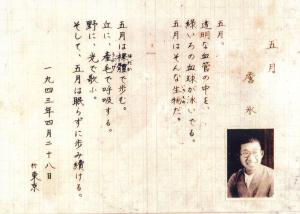 五月
詹氷
五月。
透明な血管の中を、
緑いろの血球が泳いでる。
五月はそんな生物だ。
五月は裸體で歩む。
丘に、産毛で呼吸する。
野に、光で歌ふ。
そして、五月は眠らずに歩み續ける。
一九四三年四月二十八日
於東京